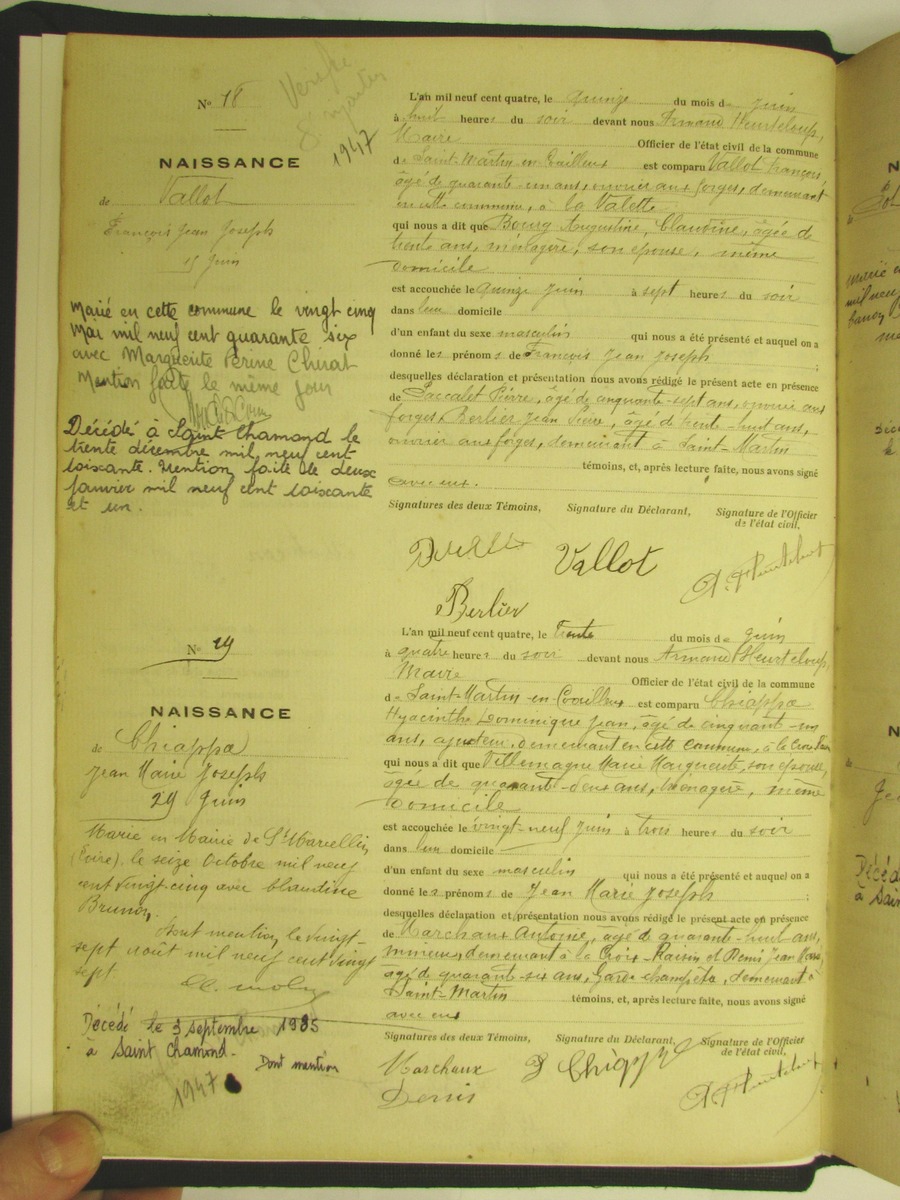 N° 18
1947
NAISSANCE
de Vallot
François Jean Joseph
15 Juin
Marié en cette commune le vingt cinq
Mai mil neuf cent quarante six
avec Marguerite Perine Chirat
Mention faite le même jour
Décédé à Saint Chamond le
trente décembre mil neuf cent
soixante. Mention faite le deux
Janvier mil neuf cent soixante
et un.
L'an mil neuf cent quatre, le quinze du mois de Juin
à huit heures du soir devant nous Armand Heurteloup,
Maire Officier de l'état civil de la commune
de Saint-Martin-en-Coailleux est comparu Vallot François,
âgé de quarante-un ans, ouvrier aux forges, demeurant
en cette commune, à la Valette
qui nous a dit que Bourg Augustine, Claudine, âgée de
trente ans, ménagère, son épouse, même
domicile
est accouchée le quinze Juin à sept heures du soir
dans leur domicile
d'un enfant du sexe masculin qui nous a été présenté et auquel on a
donné les prénoms de François Jean Joseph
desquelles déclaration et présentation nous avons rédigé le présent acte en présence
de Paccalet Pierre, âgé de cinquante-sept ans, ouvrier aux
forges, Berlier Jean Pierre, âgé de trente-huit ans,
ouvrier aux forges, demeurant à Saint-Martin
témoins, et, après lecture faite, nous avons signé
avec eux.
Signatures des deux Témoins, Signature du Déclarant, Signature de l'Officier
de l'état civil,
Vallot A. Heurteloup
Berlier
N° 19
NAISSANCE
de Chiappa
Jean Marie Joseph
29 Juin
Marié en Mairie de St Marcellin
(Loire), le seize Octobre mil neuf
cent vingt-cinq avec Claudine
Brunon.
Dont mention, le vingt-
sept août mil neuf cent vingt
sept.
Décédé le 3 septembre 1985
à Saint Chamond.
Dont mention
1947
L'an mil neuf cent quatre, le trente du mois de Juin
à quatre heures du soir devant nous Armand Heurteloup,
Maire Officier de l'état civil de la commune
de Saint-Martin-en-Coailleux est comparu Chiappa
Hyacinthe Dominique Jean, âgé de cinquante-un
ans, ajusteur, demeurant en cette commune, à la Croix
qui nous a dit que Villemagne Marie Marguerite, son épouse,
âgée de quarante-deux ans, ménagère, même
domicile
est accouchée le vingt-neuf Juin à trois heures du soir
dans leur domicile
d'un enfant du sexe masculin qui nous a été présenté et auquel on a
donné les prénoms de Jean Marie Joseph
desquelles déclaration et présentation nous avons rédigé le présent acte en présence
de Marchaux Antoine, âgé de quarante-huit ans,
mineur, demeurant à la Croix-Raisin et Denis Jean
âgé de quarante-six ans, Garde-champêtre, demeurant à
Saint-Martin témoins, et, après lecture faite, nous avons signé
avec eux
Signatures des deux Témoins, Signature du Déclarant, Signature de l'Officier
de l'état civil,
Marchaux Chiappa A. Heurteloup
Denis